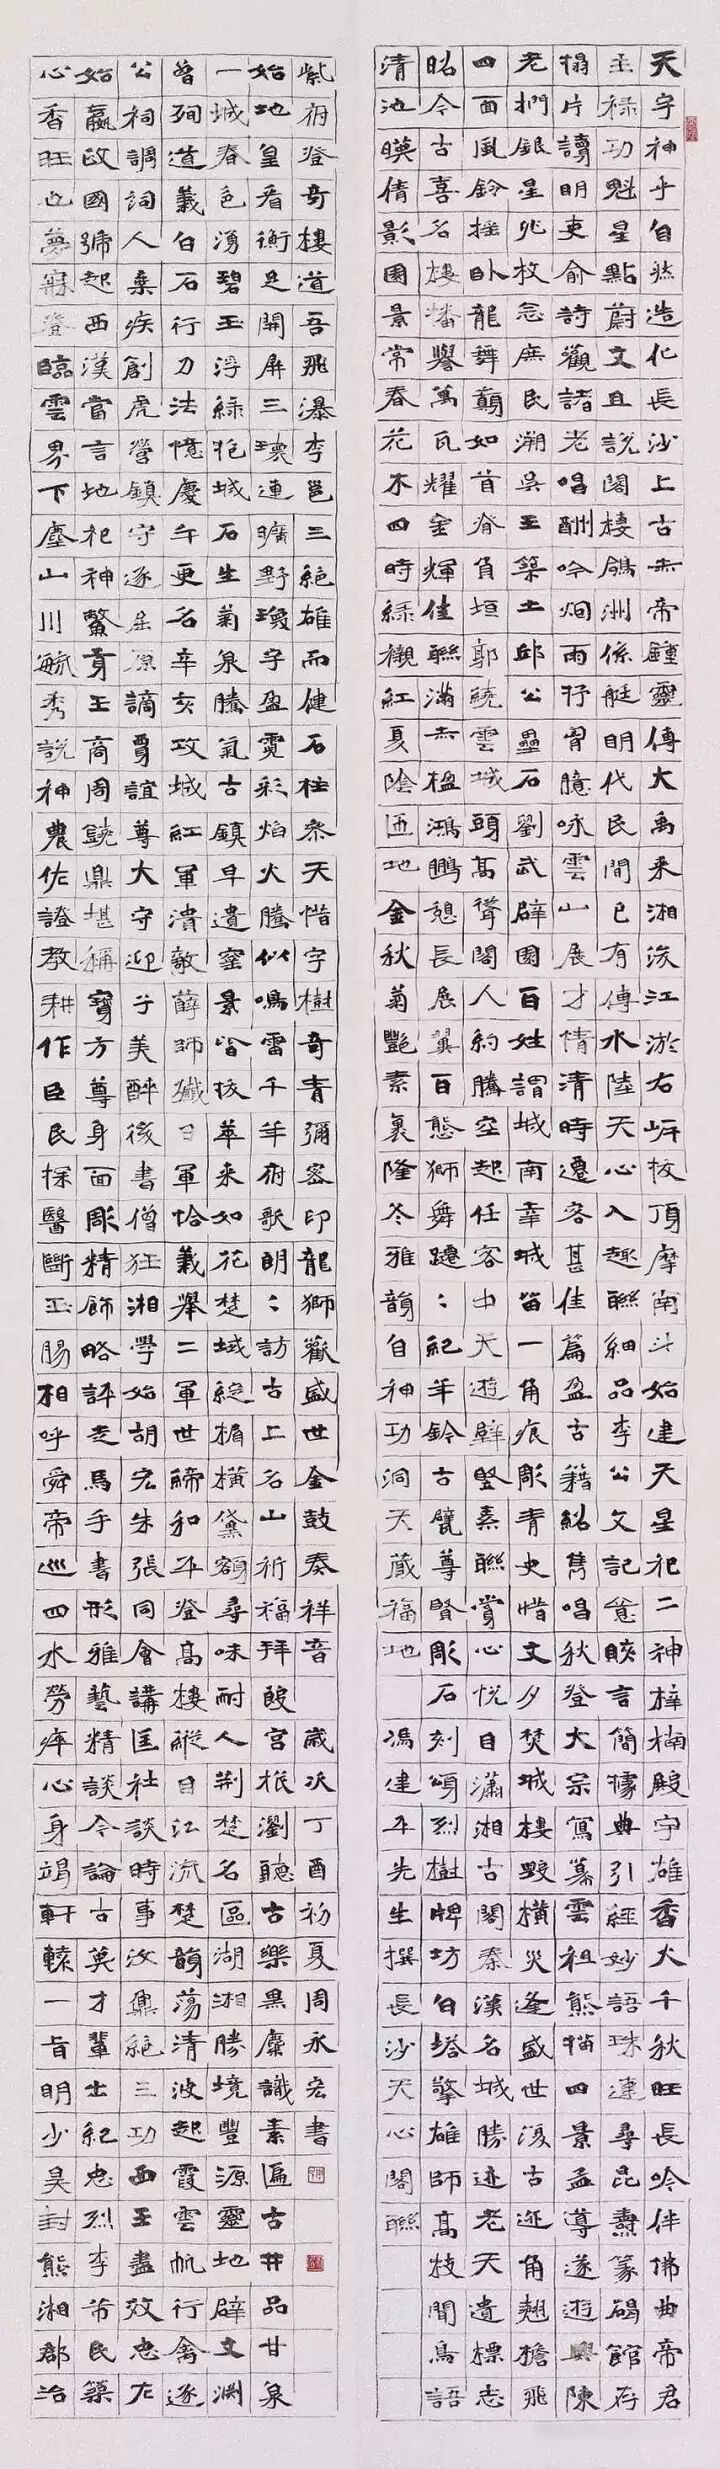 天宇神乎自然造化長沙上古赤帝鍾靈傳大禹来湘浚江淤右岈极頂摩南斗始建天星祀二神梓楠殿宇雄香火千秋旺長吟伴佛曲帝君
主禄功魁星點蔚文且説閣棲鴿洲係艇明代民間已有傳水陸天心入趣聯細品李公文記意賅言簡據典引經妙語珠連尋昆壽篆碣館存
榻片讀明吏俞詩觀諸老唱酬吟烟雨抒胷臆咏雲山展才情清時遷客甚佳篇盈古籍紹雋唱秋登大宗寫幕雲祖熊描四景孟導遂遊興陳
老捫銀星兆枚急庶民溯吴王築土邱公壘石劉武辟園百姓謂城南韋城笛一角痕彫青史惜文夕焚城樓毁橫災逢盛世復古迹角翹檐飛
四面風鈴摇卧龍舞巔如首脊負垣郭繞雲城頭高聳閣人約騰空起任客中天遊壁豎素聯賞心悦目瀟湘古閣秦漢名城勝迹老天遺標志
昭今古喜名樓播譽萬瓦耀金輝佳聯滿赤楹鴻鵬憩長展翼百態獅舞躚〻紀年鈴古甓尊賢彫石刻頌烈樹牌坊白塔擎雄師高枝聞鳥語
清池暎倩影園景常春花木四時緑襯紅夏陰匝地金秋菊艷素裏隆冬雅韻自神功洞天藏福地 馮建平先生撰長沙天心閣聯
紫府登奇樓道吾飛瀑李邕三絶雄而健石柱参天惜字樹奇青彌密印龍獅歡盛世金鼓奏祥音 歲次丁酉初夏周永宏書
始地皇看衡足開屏三瓌連曠野瓊宇盈霓彩焰火騰似鳴雷千年府歌朗〻訪古上名山祈福拜殿宫瀏聽古樂黑麋識素匾古井品甘泉
一城春色湧碧玉浮緑抱城石生菊泉騰氣古鎮早遺窑景皆极華来如花楚域綻楣橫黛額尋味耐人荆楚名區湖湘勝境豐源靈地辟文渊
曾殉道義白石行刀法憶慶午更名辛亥攻城紅軍潰敵薛師殲日軍恰義舉二軍世締和平登高樓縱目江流楚韻蕩清波起霞雲帆行禽逐
公祠調詞人棄疾創虎營鎮守逐屈原謫賈誼尊大守迎子美醉後書僧狂湘學始胡宏朱張同會講匡社談時事汝鼐絶三功西王盡效忠左
始嬴政國號起西漢當言地祀神鱉貢王商周鐃鼎堪稱寶方尊身面彫精飾略評走馬手書形雅藝精談今論古萬才輩出紀忠烈李芾民築
心香旺也夢寐登臨雲界下塵山川毓秀説神農佐證教耕作臣民採醫斷玉賜相呼舜帝巡四水勞瘁心身竭軒轅一旨明少昊封熊湘郡治